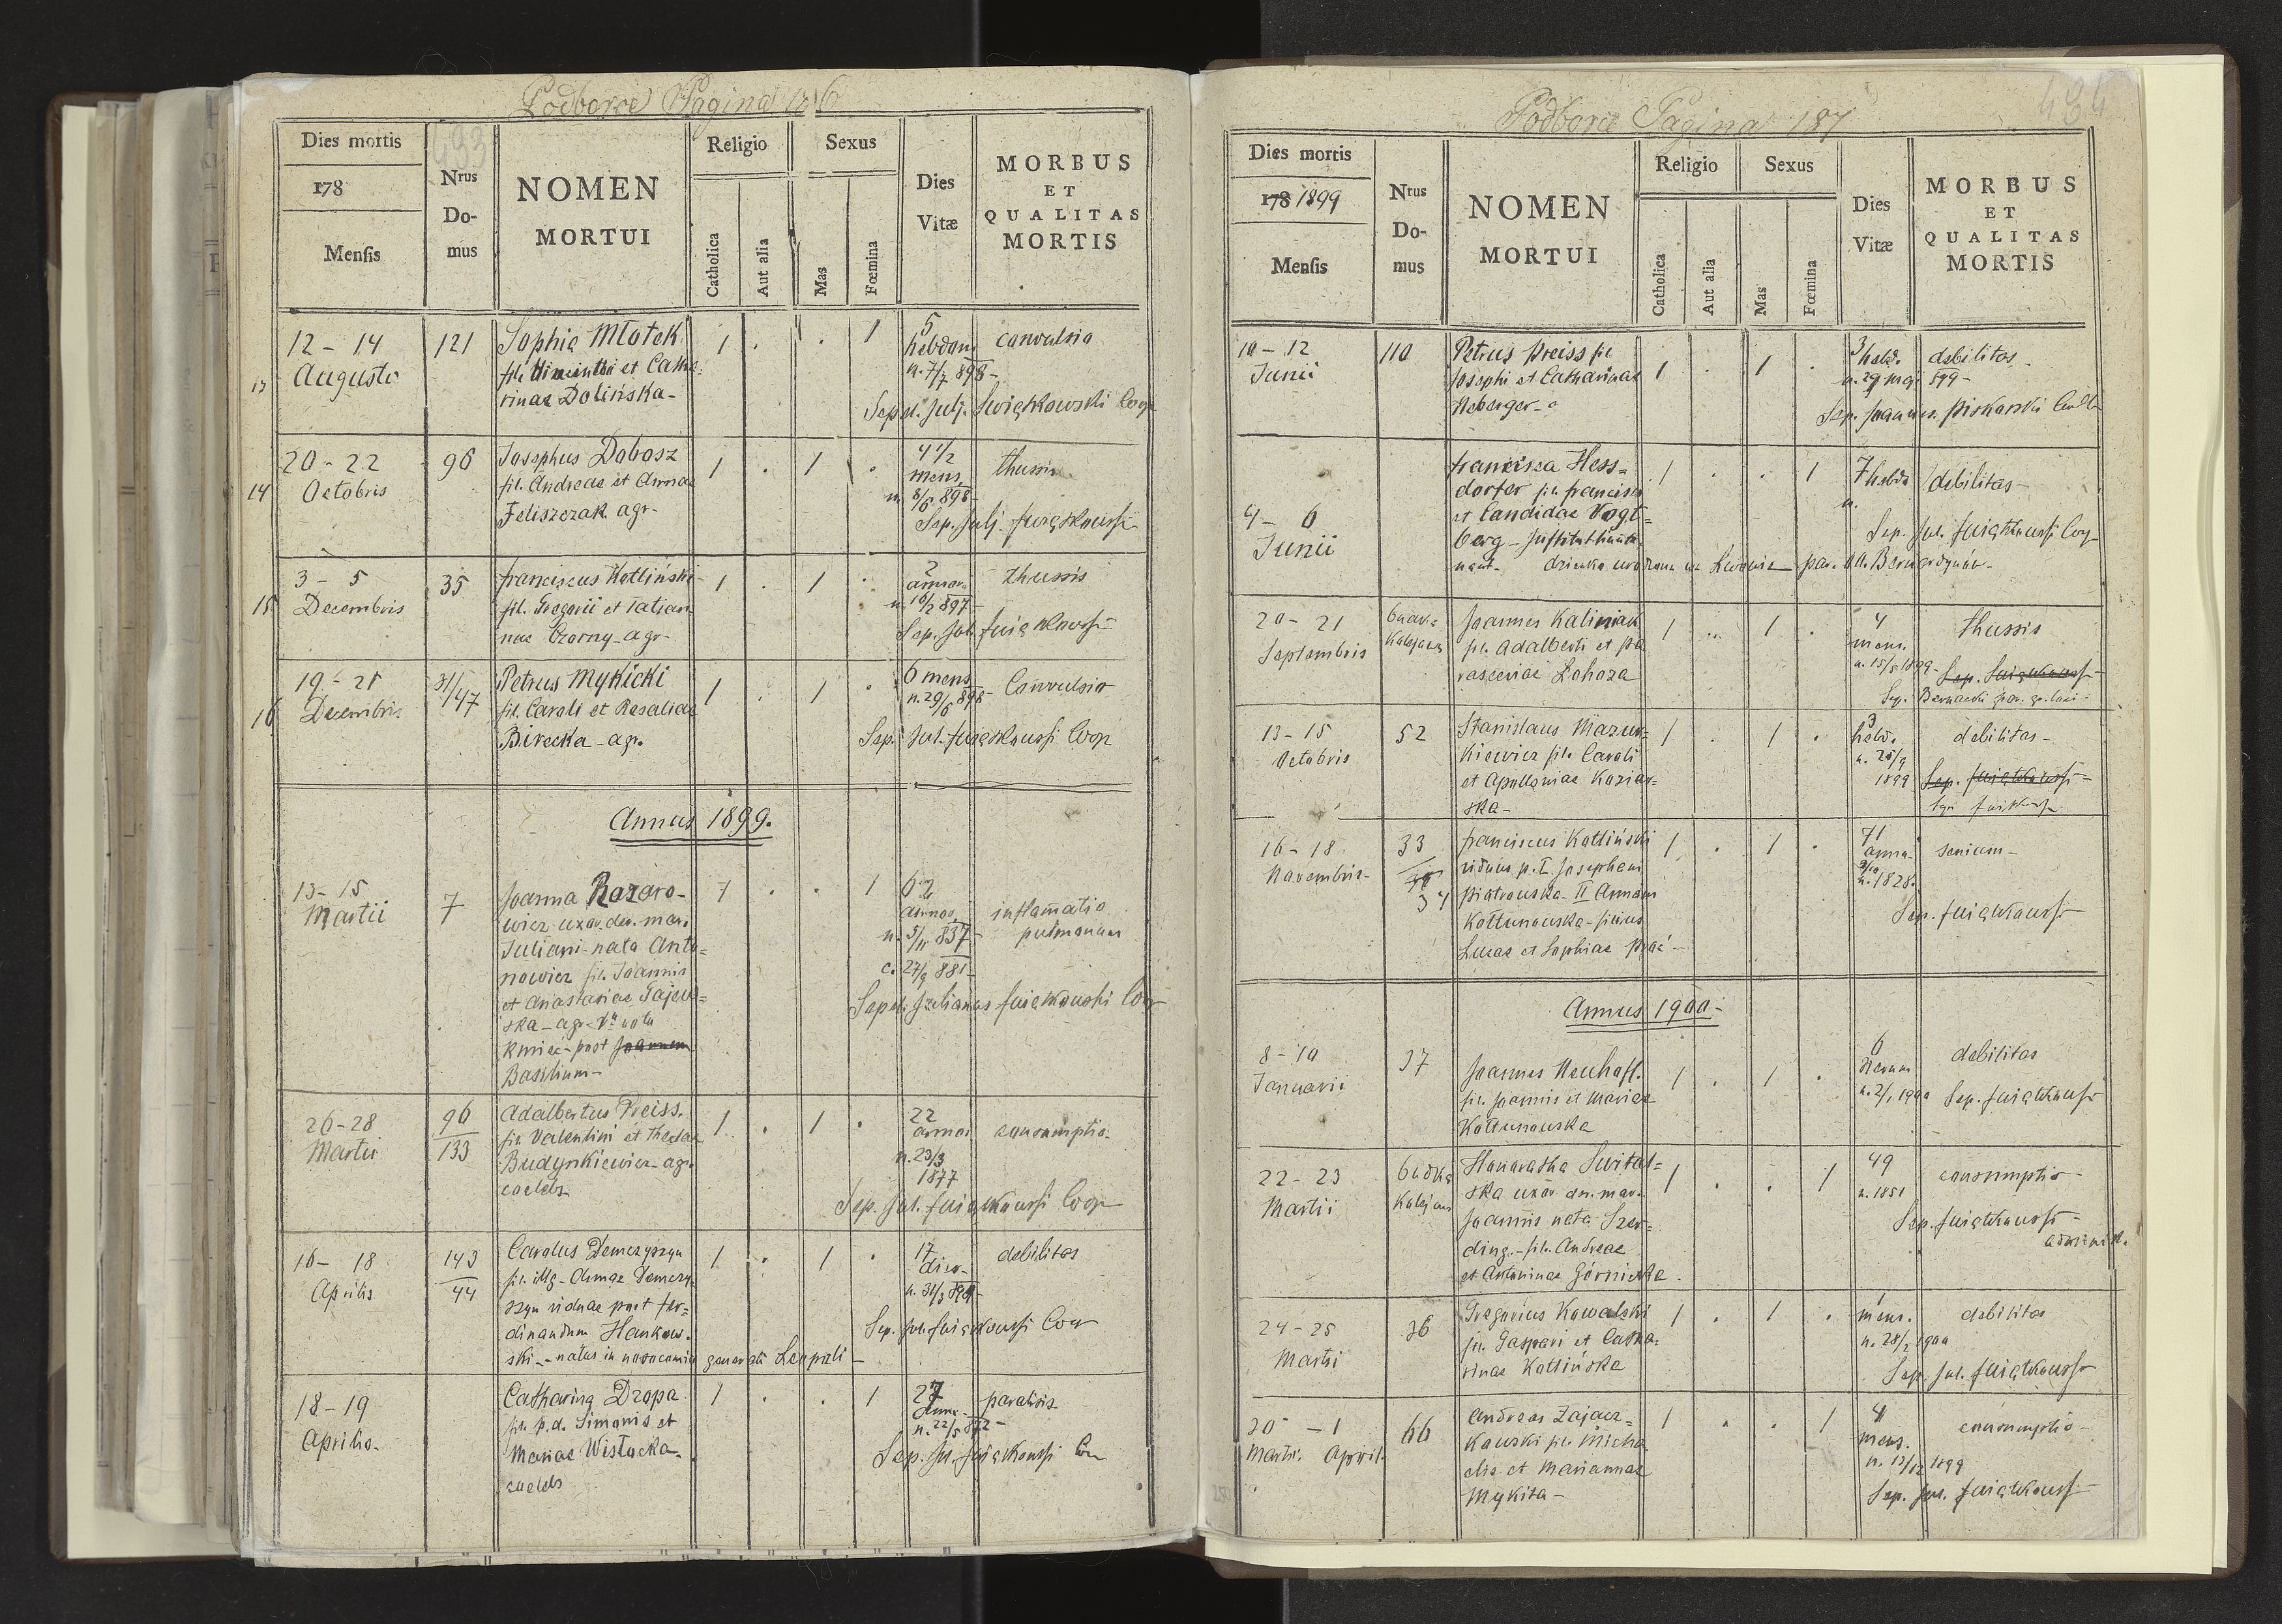 Podborce Pagina 186
493
Dies mortis
178
Mensis
Nrus Do-mus
NOMEN MORTUI
Religio
Catholica
Aut alia
Sexus
Mas
Fœmina
Dies Vitæ
MORBUS ET QUALITAS MORTIS
13
12 - 14 Augusto
121
Sophia Młotek
fil. Vincentii et Catha-
rinae Dolińska -
1 . . 1
5 hebdom.
n. 7/7 898 -
convulsio
Sepel. Julj. Swiątkowski Coop
14
20 - 22 Octobris
96
Josephus Dobosz
fil. Andreae et Annae
Feliszczak agr -
1 . 1 .
4 1/2 mens.
n. 8/6 898 -
thussis
Sep. Julj. Swiątkowski
15
3 - 5 Decembris
35
Franciscus Kotliński
fil. Gregorii et Tatian-
nae Czorny - agr -
1 . 1 .
2 annor.
n. 16/2 897 -
thussis
Sep. Jul. Swiątkowski
16
19 - 21 Decembris
31/47
Petrus Mykicki
fil. Caroli et Rosaliae
Birecka - agr.
1 . 1 .
6 mens
n. 29/6 898 -
Convulsio
Sep. Jul. Swiątkowski Coop
Annus 1899.
13 - 15 Martii
7
Joanna Rozaro-
wicz uxor der. mar.
Juliani - nata Anto-
nowicz fil. Joannis
et Anastasiae Gajew-
ska - agr - Vª vota
Kmieć - post Joannem
Basilium -
1 . . 1
62 annor.
n. 5/11 837 -
c. 27/9 881 -
inflamatio pulmonum
Sepel. Julianus Swiątkowski Coop
26 - 28 Martii
96
133
Adalbertus Preiss.
fil. Valentini et Theclae
Budynkiewicz - agr.
caelebs -
1 . 1 .
22 annor
n. 23/3 1877
consumptio -
Sep. Jul. Swiątkowski Coop
16 - 18 Aprilis
143
44
Carolus Demczyszyn
fil. illg - Annae Demczy-
szyn viduae post Fer-
dinandum Hankow-
ski - natus in nosocomio generali Leopoli -
1 . 1 .
17 dier -
n. 31/3 899 -
debilitas
Sep. Jul. Swiątkowski Coop
18 - 19 Aprilis -
Catharina Dzopa
fil. p. d. Simonis et
Mariae Wistocka -
caelebs
1 . . 1
27 Annor -
n. 22/5 872 -
paralisis
Sep. Jul. Swiątkowski Coop
Podborce Pagina 187
494
Dies mortis
178 1899
Mensis
Nrus Do-mus
NOMEN MORTUI
Religio
Catholica
Aut alia
Sexus
Mas
Fœmina
Dies Vitæ
MORBUS ET QUALITAS MORTIS
10 - 12 Junii
110
Petrus Preiss fil
Josephi et Catharinae
Heberger -
1 . 1 .
3 hebd.
n. 29 maji 899 -
debilitas -
Sep. Joannes Piskorski
4 - 6 Junii
Franciszka Hess-
dorfer fil. Francisci
et Candidae Vogt-
berg -
dziecko urodzone we Lwowie - par. OO. Bernardynów -
1 . . 1
7 hebd
n.
debilitas -
Sep. Jul. Swiątkowski Coop
20 - 21 Septembris
budka Kolejowa
Joannes Kaliniak
fil. Adalberti et Pa-
rasceviae Lohoza
1 .. 1 .
4 mens.
n. 15/5 1899 -
thussis
Sep. Swiątkowski -
Sep. Bernacki
13 - 15 Octobris
52
Stanislaus Mazur-
kiewicz fil. Caroli
et Apolloniae Koziar-
ska -
1 . 1 .
3 hebd.
n. 25/9 1899
debilitas -
Sep. Swiątkowski -
Sep. Swiątkowski
16 - 18 Novembris -
33
34
Franciscus Kotliński
viduus p. I. Josepham
Piotrowska - II Annam
Kottunowska - filius
Lucae et Sophiae
1 . 1 .
71 anno.
n. 1828.
senium -
Sep. Swiątkowski
Annus 1900 -
8 - 10 Januarii
37
Joannes Neuhoff.
fil. Joannis et Mariae
Kottunowska
1 . 1 .
6 dierum
n. 2/1 1900
debilitas
Sep. Swiątkowski
22 - 23 Martii
budka Kolejowa
Honoratha Swital-
ska uxor der. mar.
Joannis nata Szer-
ding. - fil. Andreae
et Antoninae Górnicka .
1 . . 1
49
n. 1851
consumptio -
Sep. Swiątkowski -
administ.
24 - 25 Martii
36
Gregorius Kowalski
fil. Gaspari et Catha-
rinae Kotlińska
1 . 1 .
1 mens.
n. 28/2 1900
debilitas
Sep. Jul. Swiątkowski
30 - 1 Martii. April.
66
Andreas Zajacz-
kowski fil. Micha-
elis et Mariannae
Mykita -
1 . . 1
4 mens.
n. 13/12 1899
consumptio -
Sep. Jul. Swiątkowski